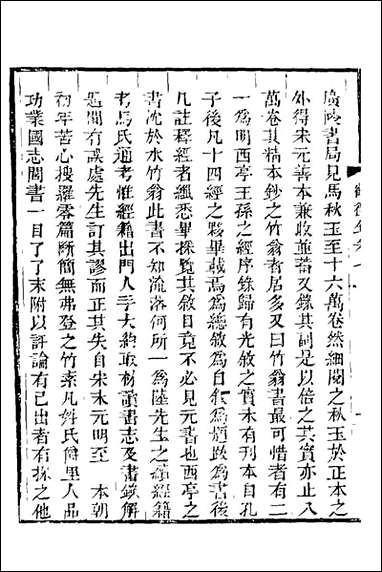 廣陵書局見馬秋玉至十六萬卷然細閱之秋玉於正本之
外得宋元善本兼收並蓄又錄其詞是以倍之其實亦止八
萬卷其精本鈔之竹翁者居多又曰竹翁書最可惜者有二
一為明西亭王孫之經序錄歸有光敘之實未有刊本自孔
子後凡十四經之夥畢載焉為總敘為自敘為題跋為書後
凡註釋經者纖悉畢採覽其敘目竟不必見元書也西亭之
書沈於水竹翁此書不知流落何所一為陸先生之續經籍
考馬氏通考惟經籍出門人手大約取材讀書志及書錄解
題間有誤處先生訂其謬而正其失自宋末元明至 本朝
初年苦心搜羅零篇斷簡無弗登之竹素凡姓氏爵里人品
功業國志闕書一目了了末附以評論有已出者有採之他